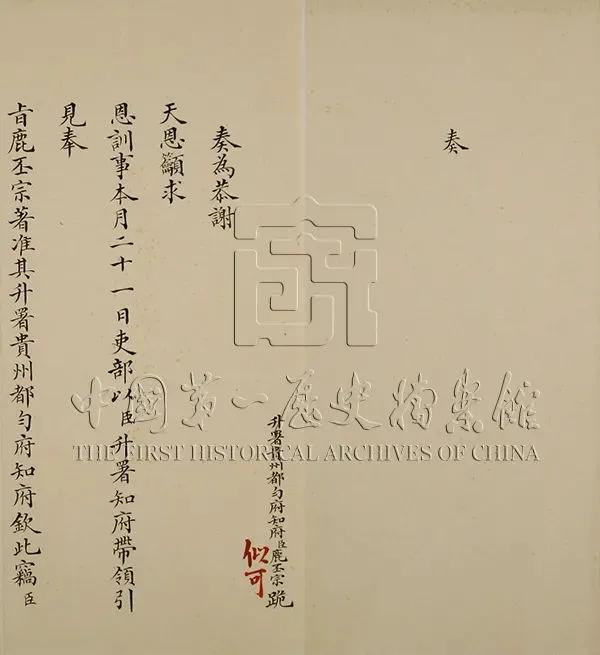 奏
升署貴州都匀府知府臣鹿丕宗跪
似可
奏為恭謝
天恩籲求
恩訓事本月二十一日吏部以臣升署知府帶領引
見奉
旨鹿丕宗著准其升署貴州都匀府知府欽此竊臣
中國第一歷史檔案館
THE FIRST HISTORICAL ARCHIVES OF CHINA